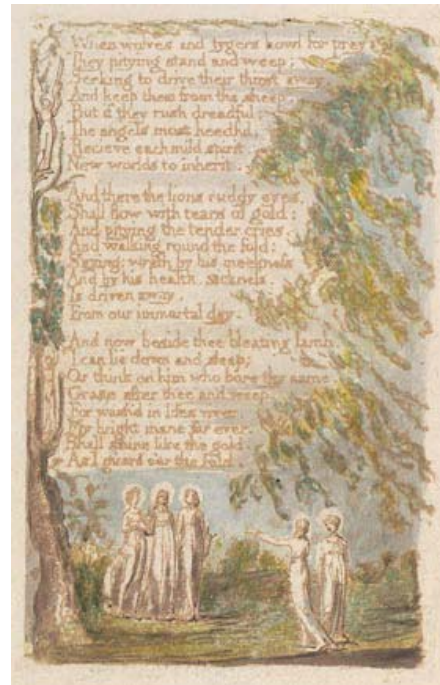 When wolves and tygers howl for prey
They pitying stand and weep;
Seeking to drive their thirst away,
And keep them from the sheep.
But if they rush dreadful;
The angels most heedful,
Recieve each mild spirit.
New worlds to inherit.
And there the lions ruddy eyes,
Shall flow with tears of gold:
And pitying the tender cries
And walking round the fold:
Saying: wrath by his meekness
And by his health, sickness,
Is driven away,
From our immortal day.
And now beside thee bleating lamb,
I can lie down and sleep;
Or think on him who bore thy name,
Grase after thee and weep.
For wash'd in lifes river,
My bright mane for ever,
Shall shine like the gold,
As I guard o'er the fold.